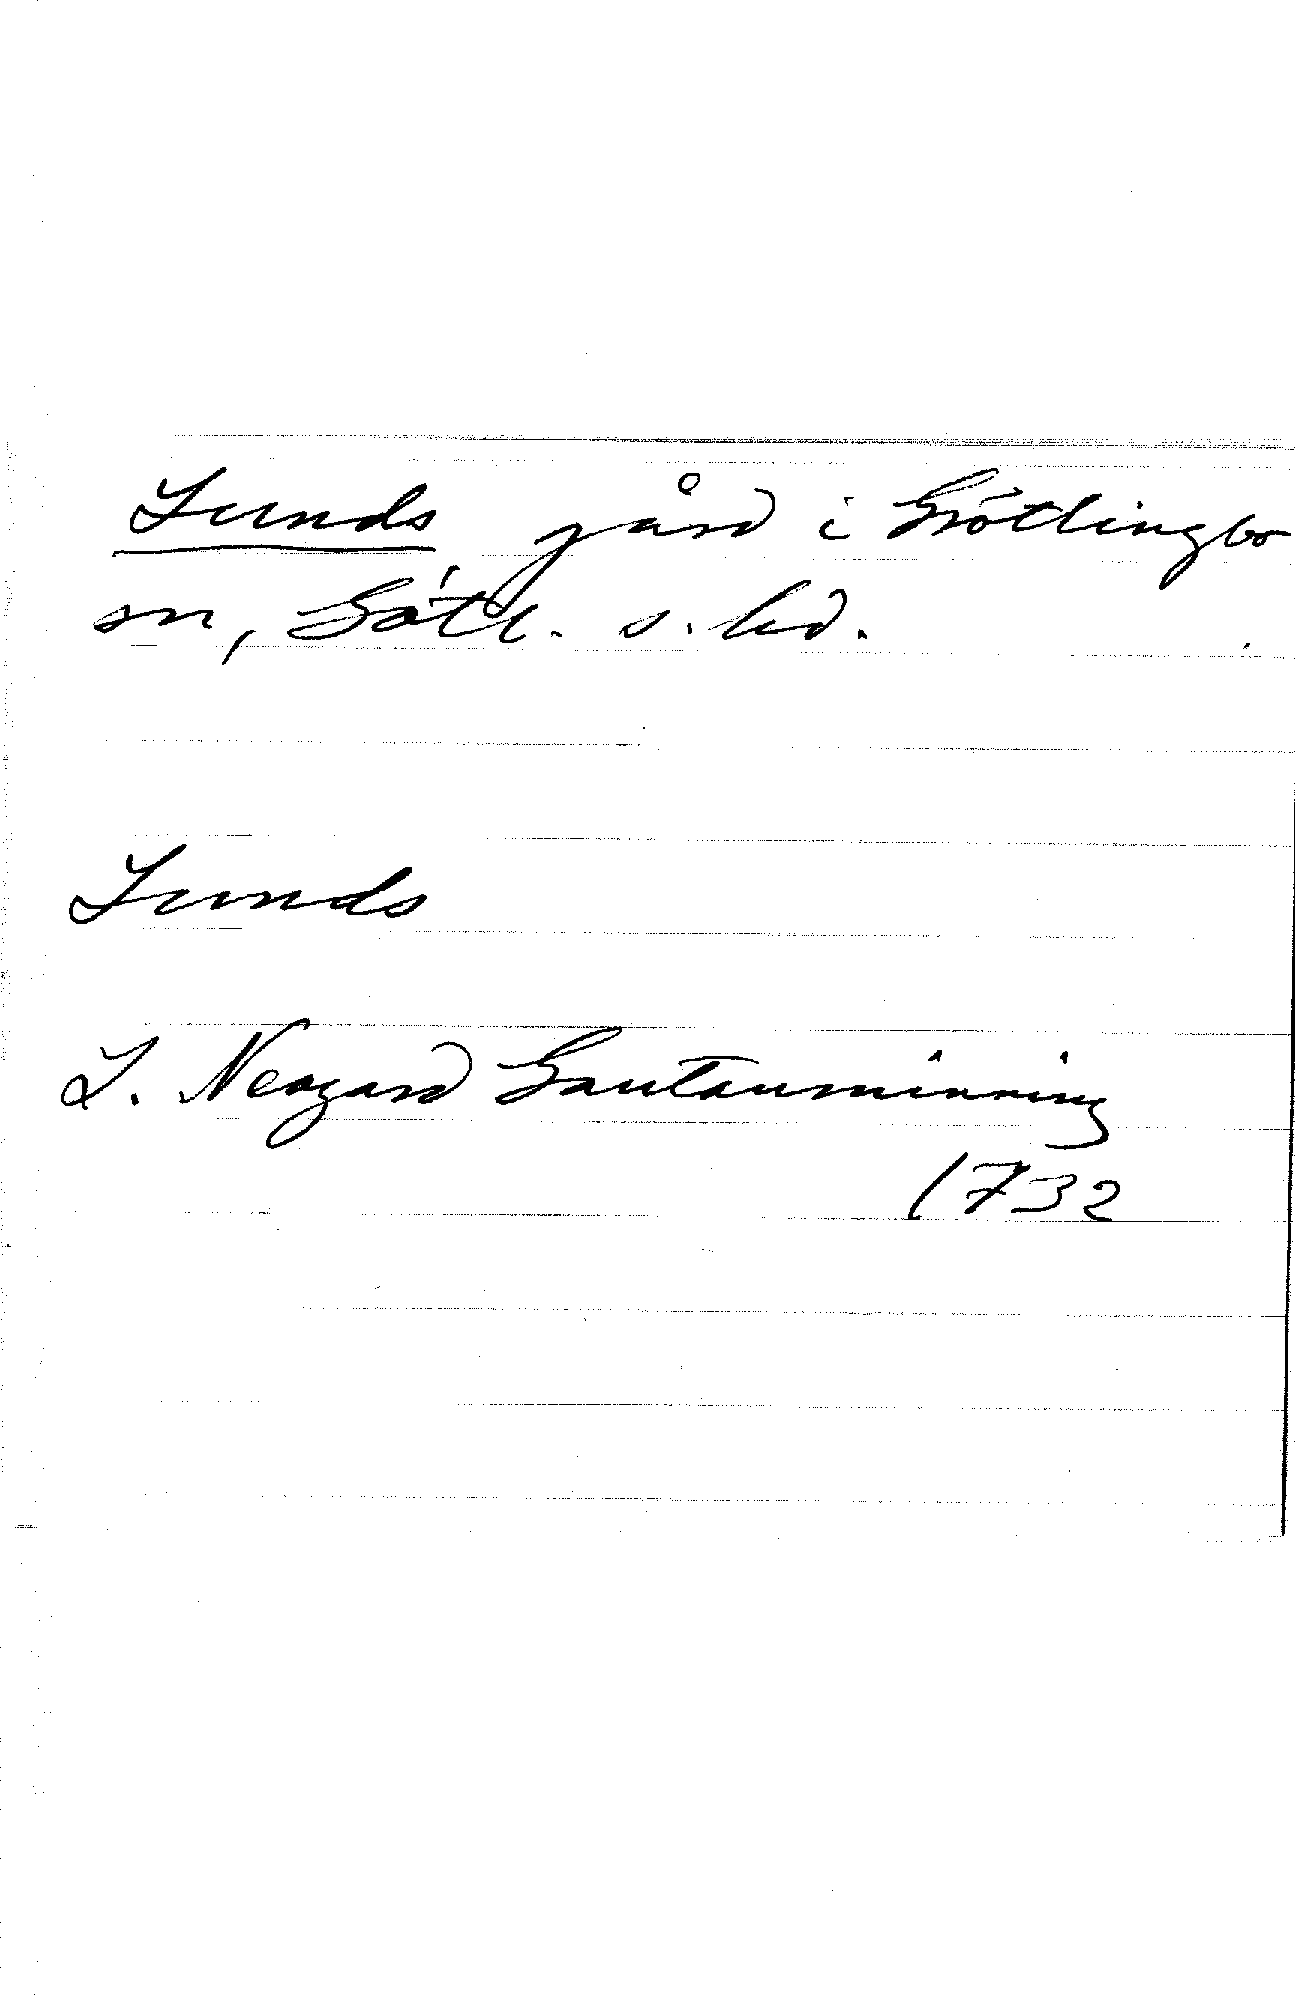 Lunds gård i Grötlingbo
sn, Götl. s. hd.
Lunds
L. Neogard Gautauminning
1732